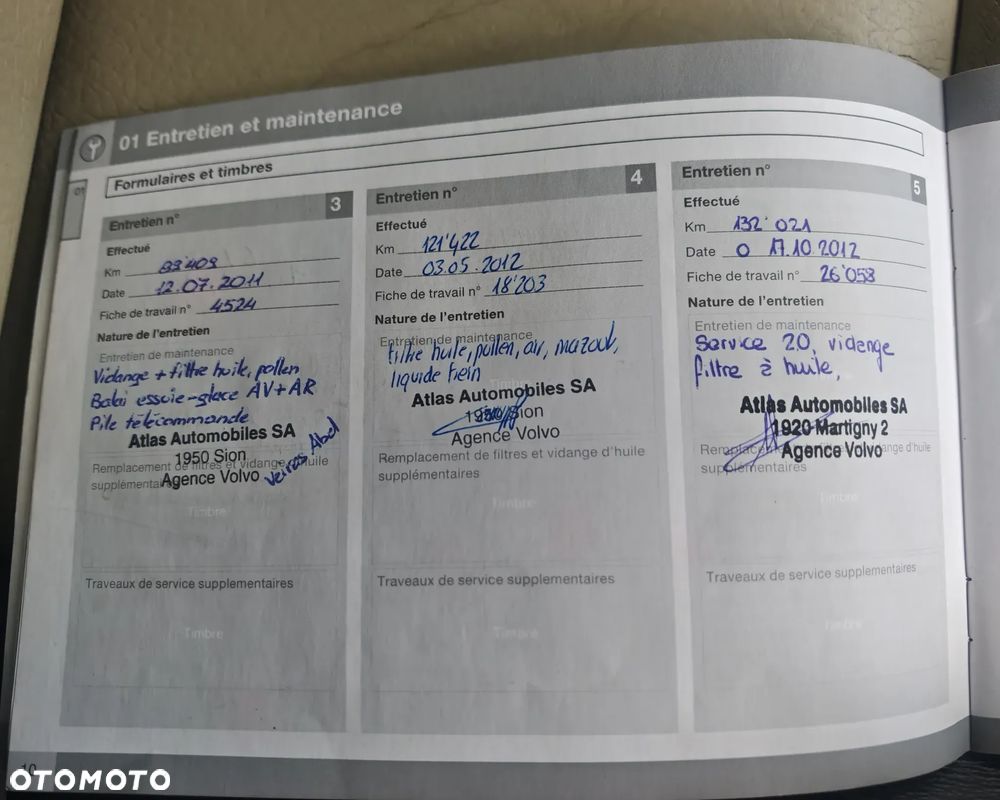 01 Entretien et maintenance
01
Formulaires et timbres
Entretien n° 3
Effectué
Km 89'409
Date 12.07.2011
Fiche de travail n° 4524
Nature de l'entretien
Entretien de maintenance
Vidange + filtre huile, pollen
Balai essuie-glace AV+AR
Pile télécommande
Atlas Automobiles SA
1950 Sion
Agence Volvo
Veiros Abel
Remplacement de filtres et vidange d'huile
supplémentaires
Timbre
Traveaux de service supplementaires
Timbre
Entretien n° 4
Effectué
Km 121'422
Date 03.05.2012
Fiche de travail n° 18'203
Nature de l'entretien
Entretien de maintenance
filtre huile, pollen, air, mazout,
liquide frein
Atlas Automobiles SA
1950 Sion
Agence Volvo
Remplacement de filtres et vidange d'huile
supplémentaires
Timbre
Traveaux de service supplementaires
Timbre
Entretien n° 5
Effectué
Km 132'021
Date 0 17.10.2012
Fiche de travail n° 26'058
Nature de l'entretien
Entretien de maintenance
Service 20, vidange
filtre à huile,
Atlas Automobiles SA
1920 Martigny 2
Agence Volvo
Remplacement de filtres et vidange d'huile
supplémentaires
Timbre
Traveaux de service supplementaires
Timbre
10
OTOMOTO